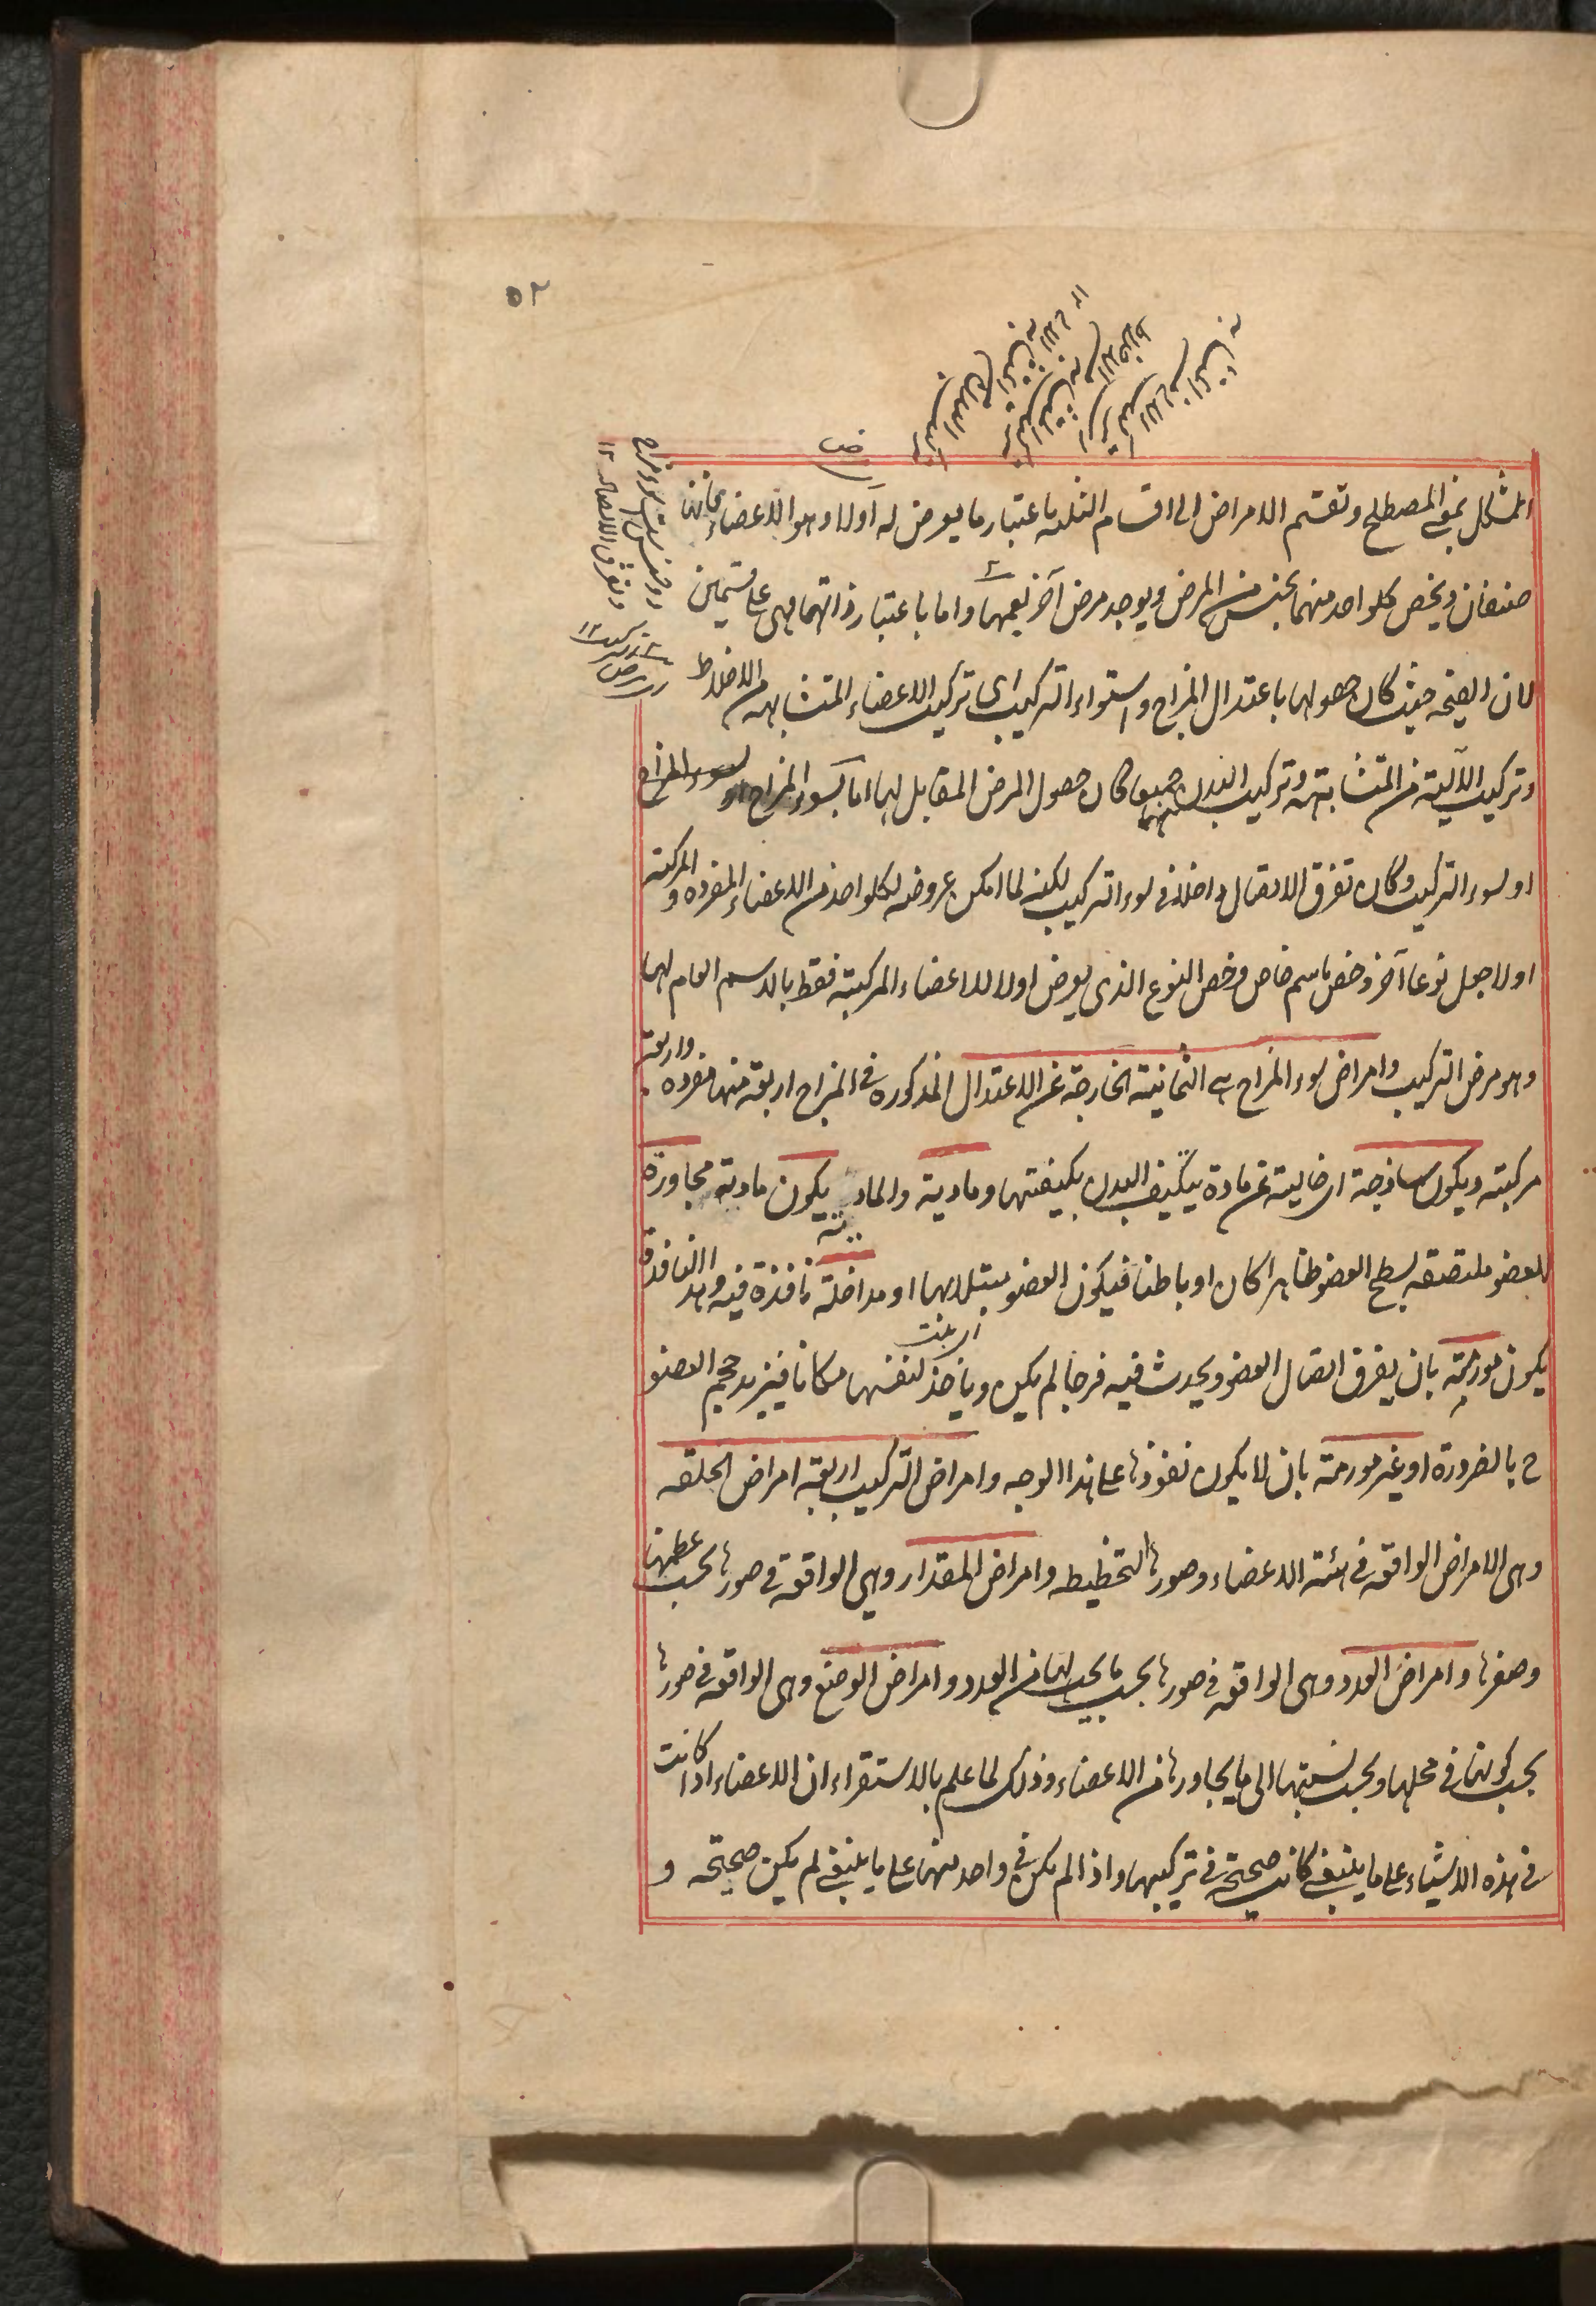 ۵۲
المشكل نمو المصطلح وتقسم الامراض الى اقسام الثلثه باعتبار ما يعرض له اولا وهو الاعضاء فانها
صنفان ويخص كلواحد منهما بجنس من المرض ويوجد مرض آخر يعمهما واما باعتبار ذاتهما فهى على قسمين
لان الصحة حيث كان حصولها باعتدال المزاج واستواء التركيب اى تركيب الاعضاء المتشابهه من الاخلاط
وتركيب الآلية من المتشابهة وتركيب البدن منهما جميعا كان حصول المرض المقابل لها اما بسوء المزاج او
او لسوء التركيب وكان تفرق الاتصال داخلا فى سوء التركيب لكنه لما امكن عروضه لكلواحد من الاعضاء المفرده والمركبة
اولا جعل نوعا آخر وخص باسم خاص وخص النوع الذى يعرض اولا للاعضاء المركبة فقط بالاسم العام لهما
وهو مرض التركيب وامراض سوء المزاج هى الثمانية الخارجة عن الاعتدال المذكوره فى المزاج اربعة منها مفرده واربعة
مركبته ويكون ساذجة اى خالية عن مادة يتكيف البدن بكيفيتها ومادية والمادية يكون مادية مجاورة
للعضو ملتصقه لسطح العضو ظاهرا كان او باطنا فيكون العضو مبتلا بها او مداخلة نافذة فيه وهذه النافذة
يكون مورمة بان يفرق اتصال العضو ويحدث فيه فرجا لم يكن وياخذ لنفسها مكانا فيزيد حجم العضو
ح بالضرورة او غير مورمة بان لا يكون نفوذها على هذا الوجه وامراض التركيب اربعة امراض الخلقه
وهى الامراض الواقعة فى هيئة الاعضاء وصورها التخطيطه وامراض المقدار وهى الواقعة فى صورها بحسب عظمها
وصغرها وامراض العدد وهى الواقعة فى صورها بحسب ما يجب لها من العدد وامراض الوضع وهى الواقعه فى صورها
بحسب كونها فى محلها وبحسب نسبتها الى ما يجاورها من الاعضاء وذلك لما علم بالاستقراء ان الاعضاء اذا كانت
فى هذه الاشياء على ما ينبغى كانت صحيحة فى تركيبها واذا لم يكن فى واحد منها على ما ينبغى لم يكن صحيحة و